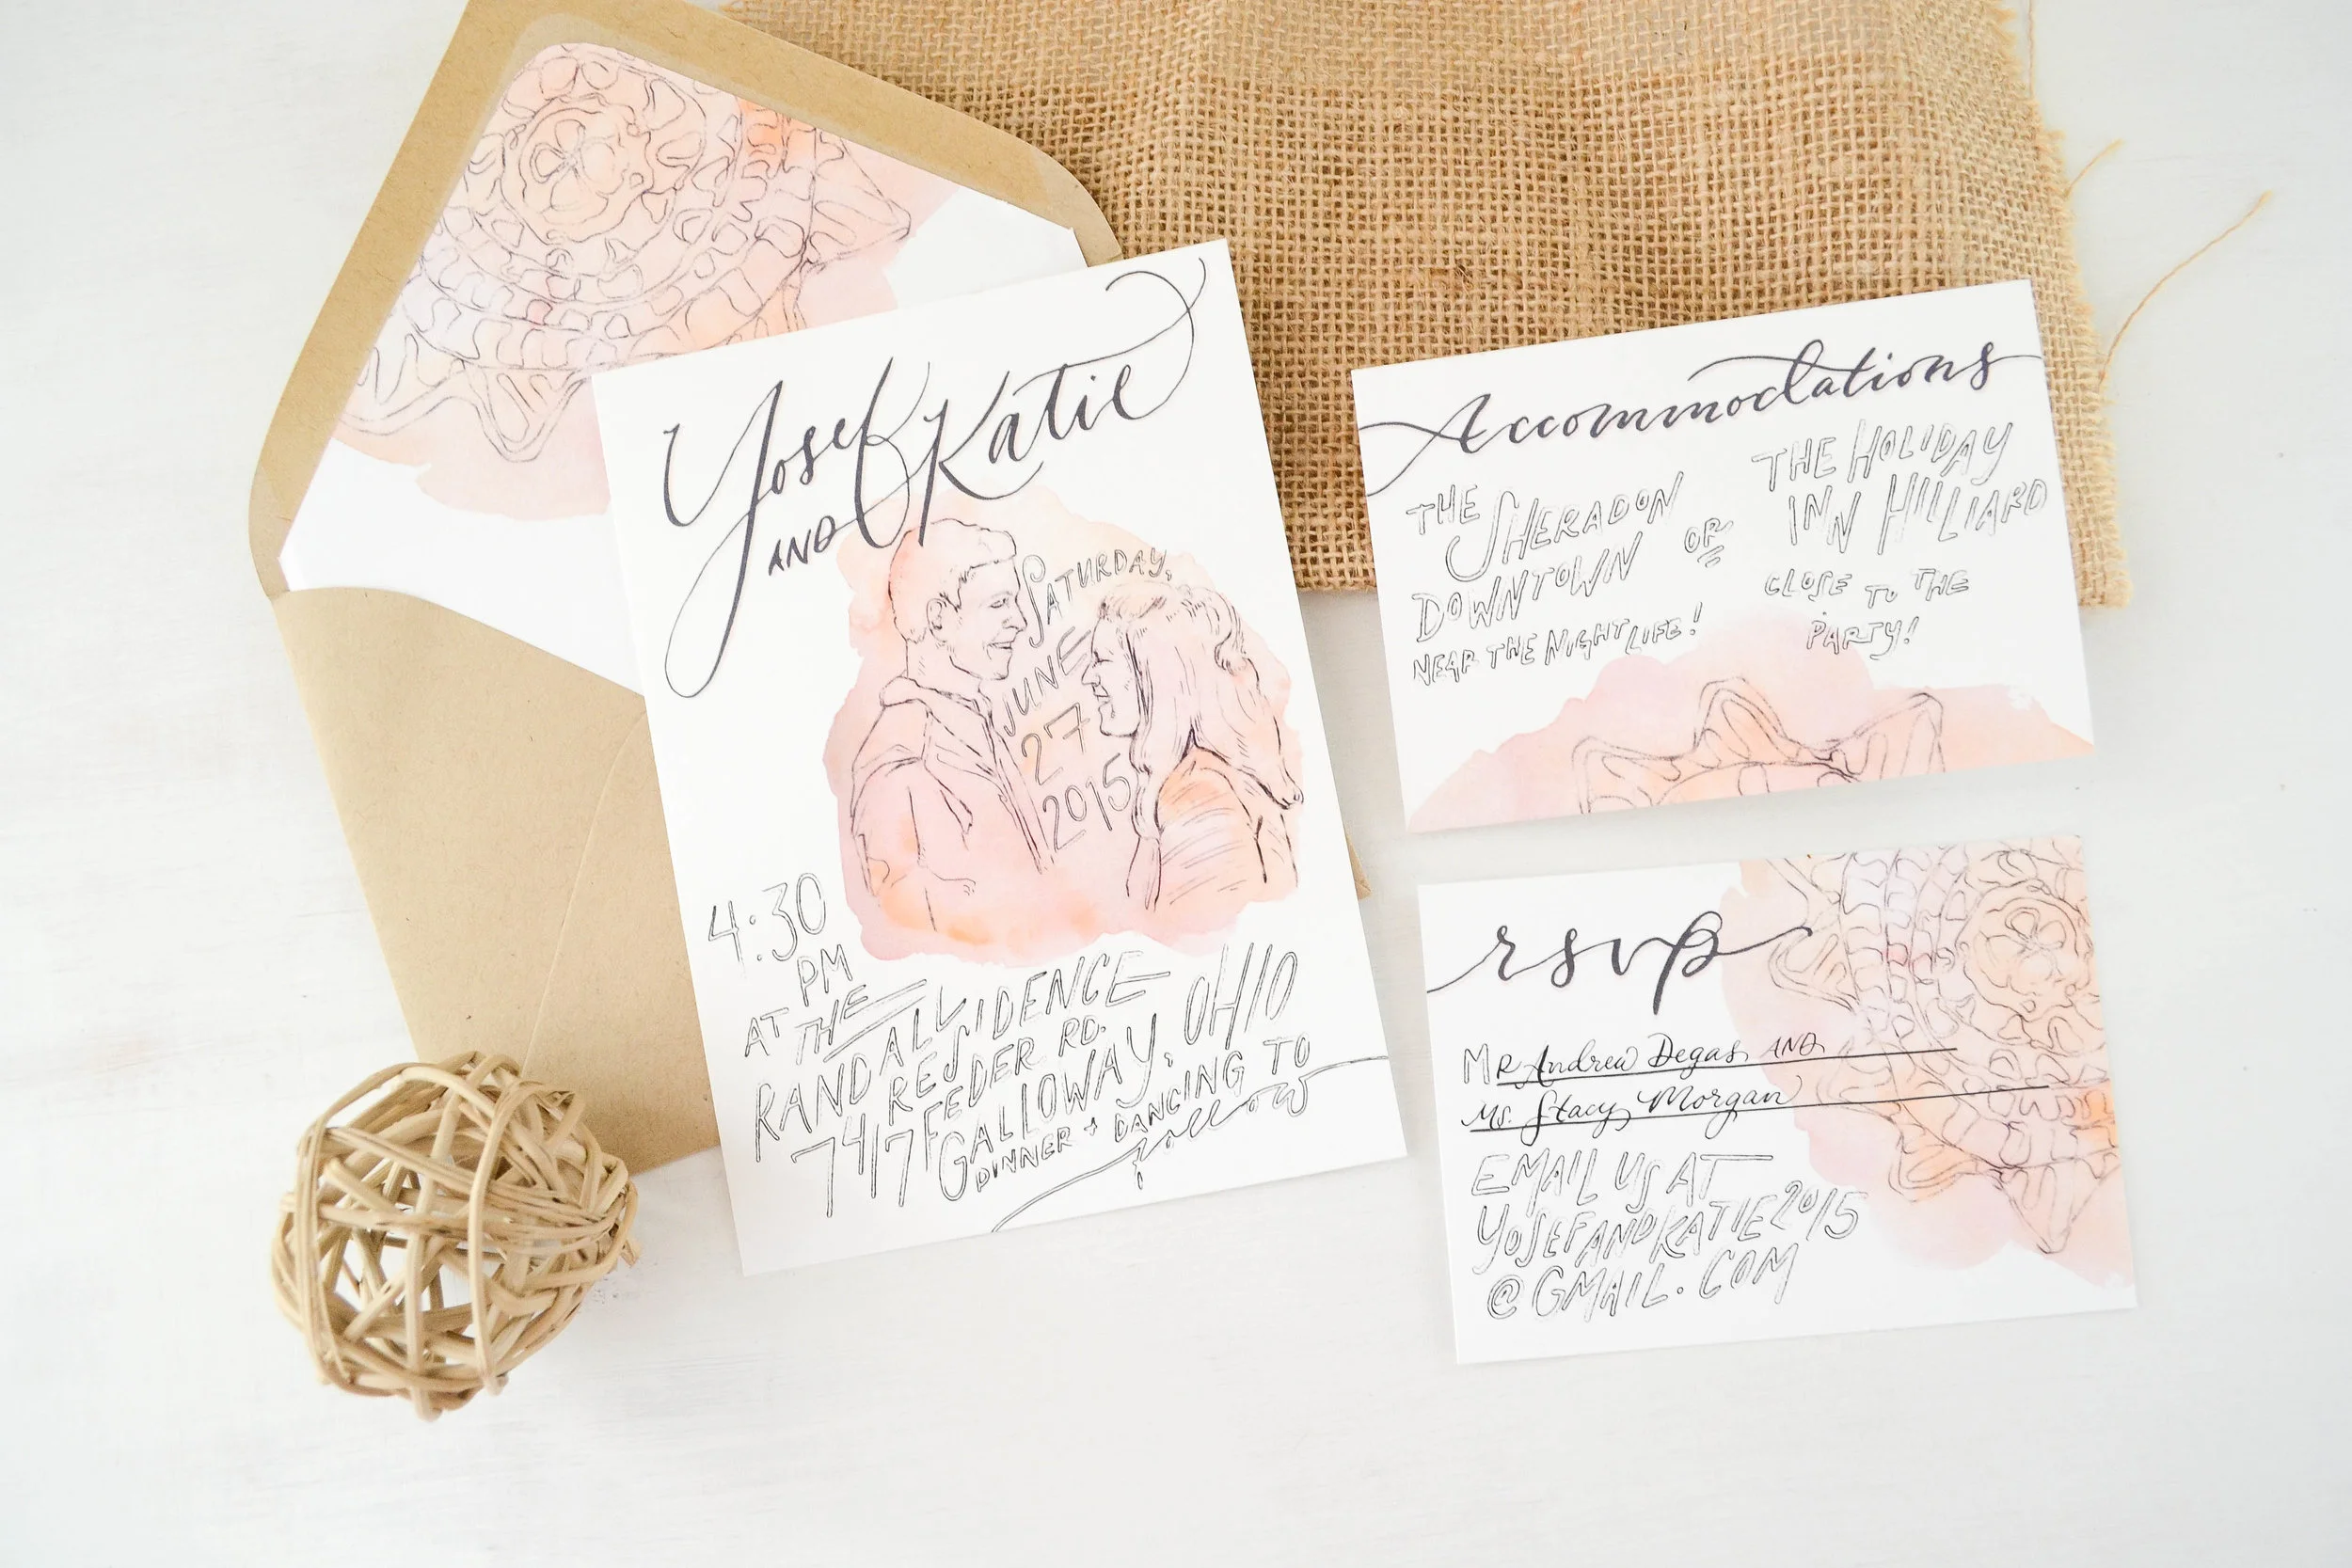 Yosef
AND Katie
SATURDAY,
JUNE
27
2015
4:30
PM
AT THE
RANDALL
RESIDENCE
7417 FEDER RD.
GALLOWAY, OHIO
DINNER + DANCING TO
follow
Accommodations
THE
SHERADON
DOWNTOWN
NEAR THE NIGHTLIFE!
OR
THE HOLIDAY
INN HILLIARD
CLOSE TO THE
PARTY!
rsvp
MR Andrew Degas AND
Ms. Stacy Morgan
EMAIL US AT
YOSEFANDKATIE2015
@GMAIL.COM